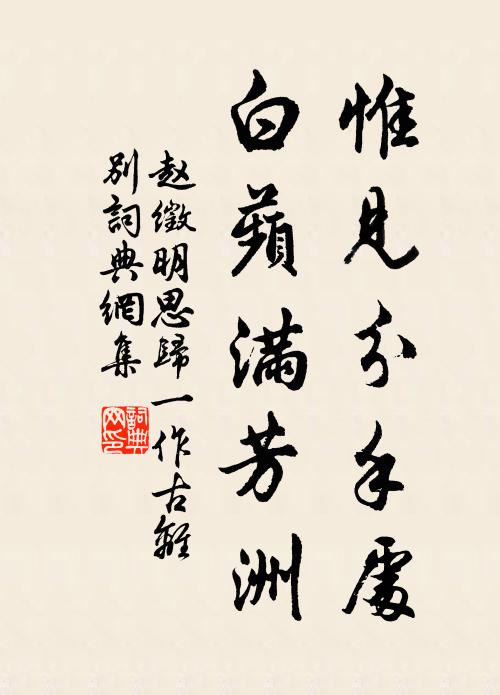 惟見分手處
白蘋滿芳洲
赵徵明思歸一作古離
別詞典網集
詞典网印